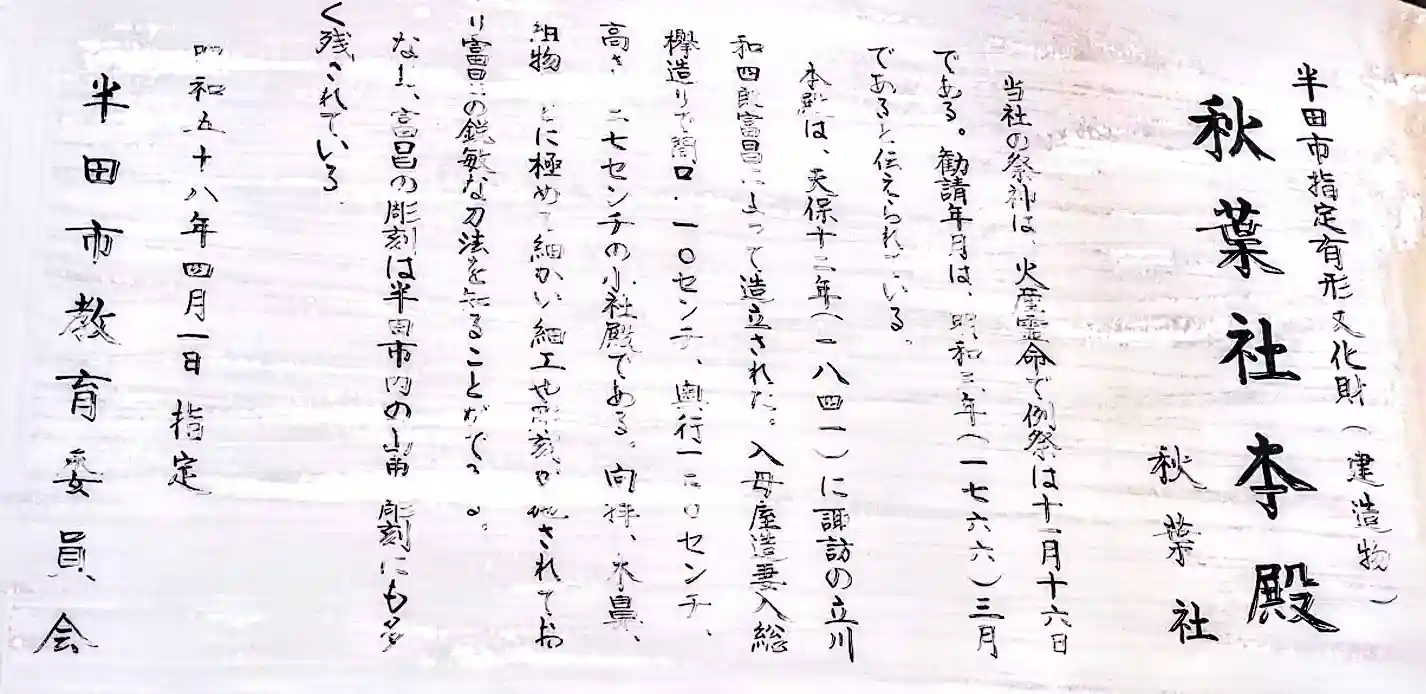 半田市指定有形文化財(建造物)
秋葉社本殿
秋葉社
当社の祭神は、火産霊命で例祭は十二月十六日
である。勧請年月は、明和三年(一七六六)三月
であると伝えられている。
本殿は、天保十二年(一八四一)に諏訪の立川
和四郎富昌によって造立された。入母屋造妻入総
欅造りで間口一一〇センチ、奥行一二〇センチ、
高さ二七センチの小社殿である。向拝、木鼻、
組物 とに極めて細かい細工や彫刻が施されてお
り富昌の鋭敏な刀法を知ることができる。
なお、富昌の彫刻は半田市内の山車 彫刻にも多
く残されている。
昭和五十八年四月一日 指定
半田市教育委員会